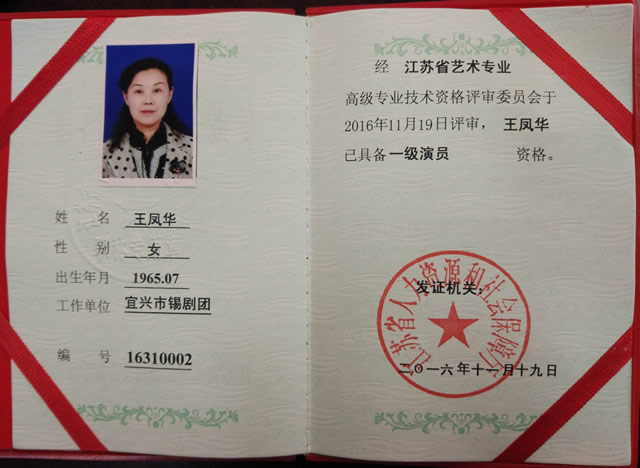 姓 名 王凤华
性 别 女
出生年月 1965.07
工作单位 宜兴市锡剧团
编 号 16310002
经 江苏省艺术专业
高级专业技术资格评审委员会于
2016年11月19日评审， 王凤华
已具备 一级演员 资格。
江苏省人力资源和社会保障厅
发证机关：
二〇一六年十一月十九日